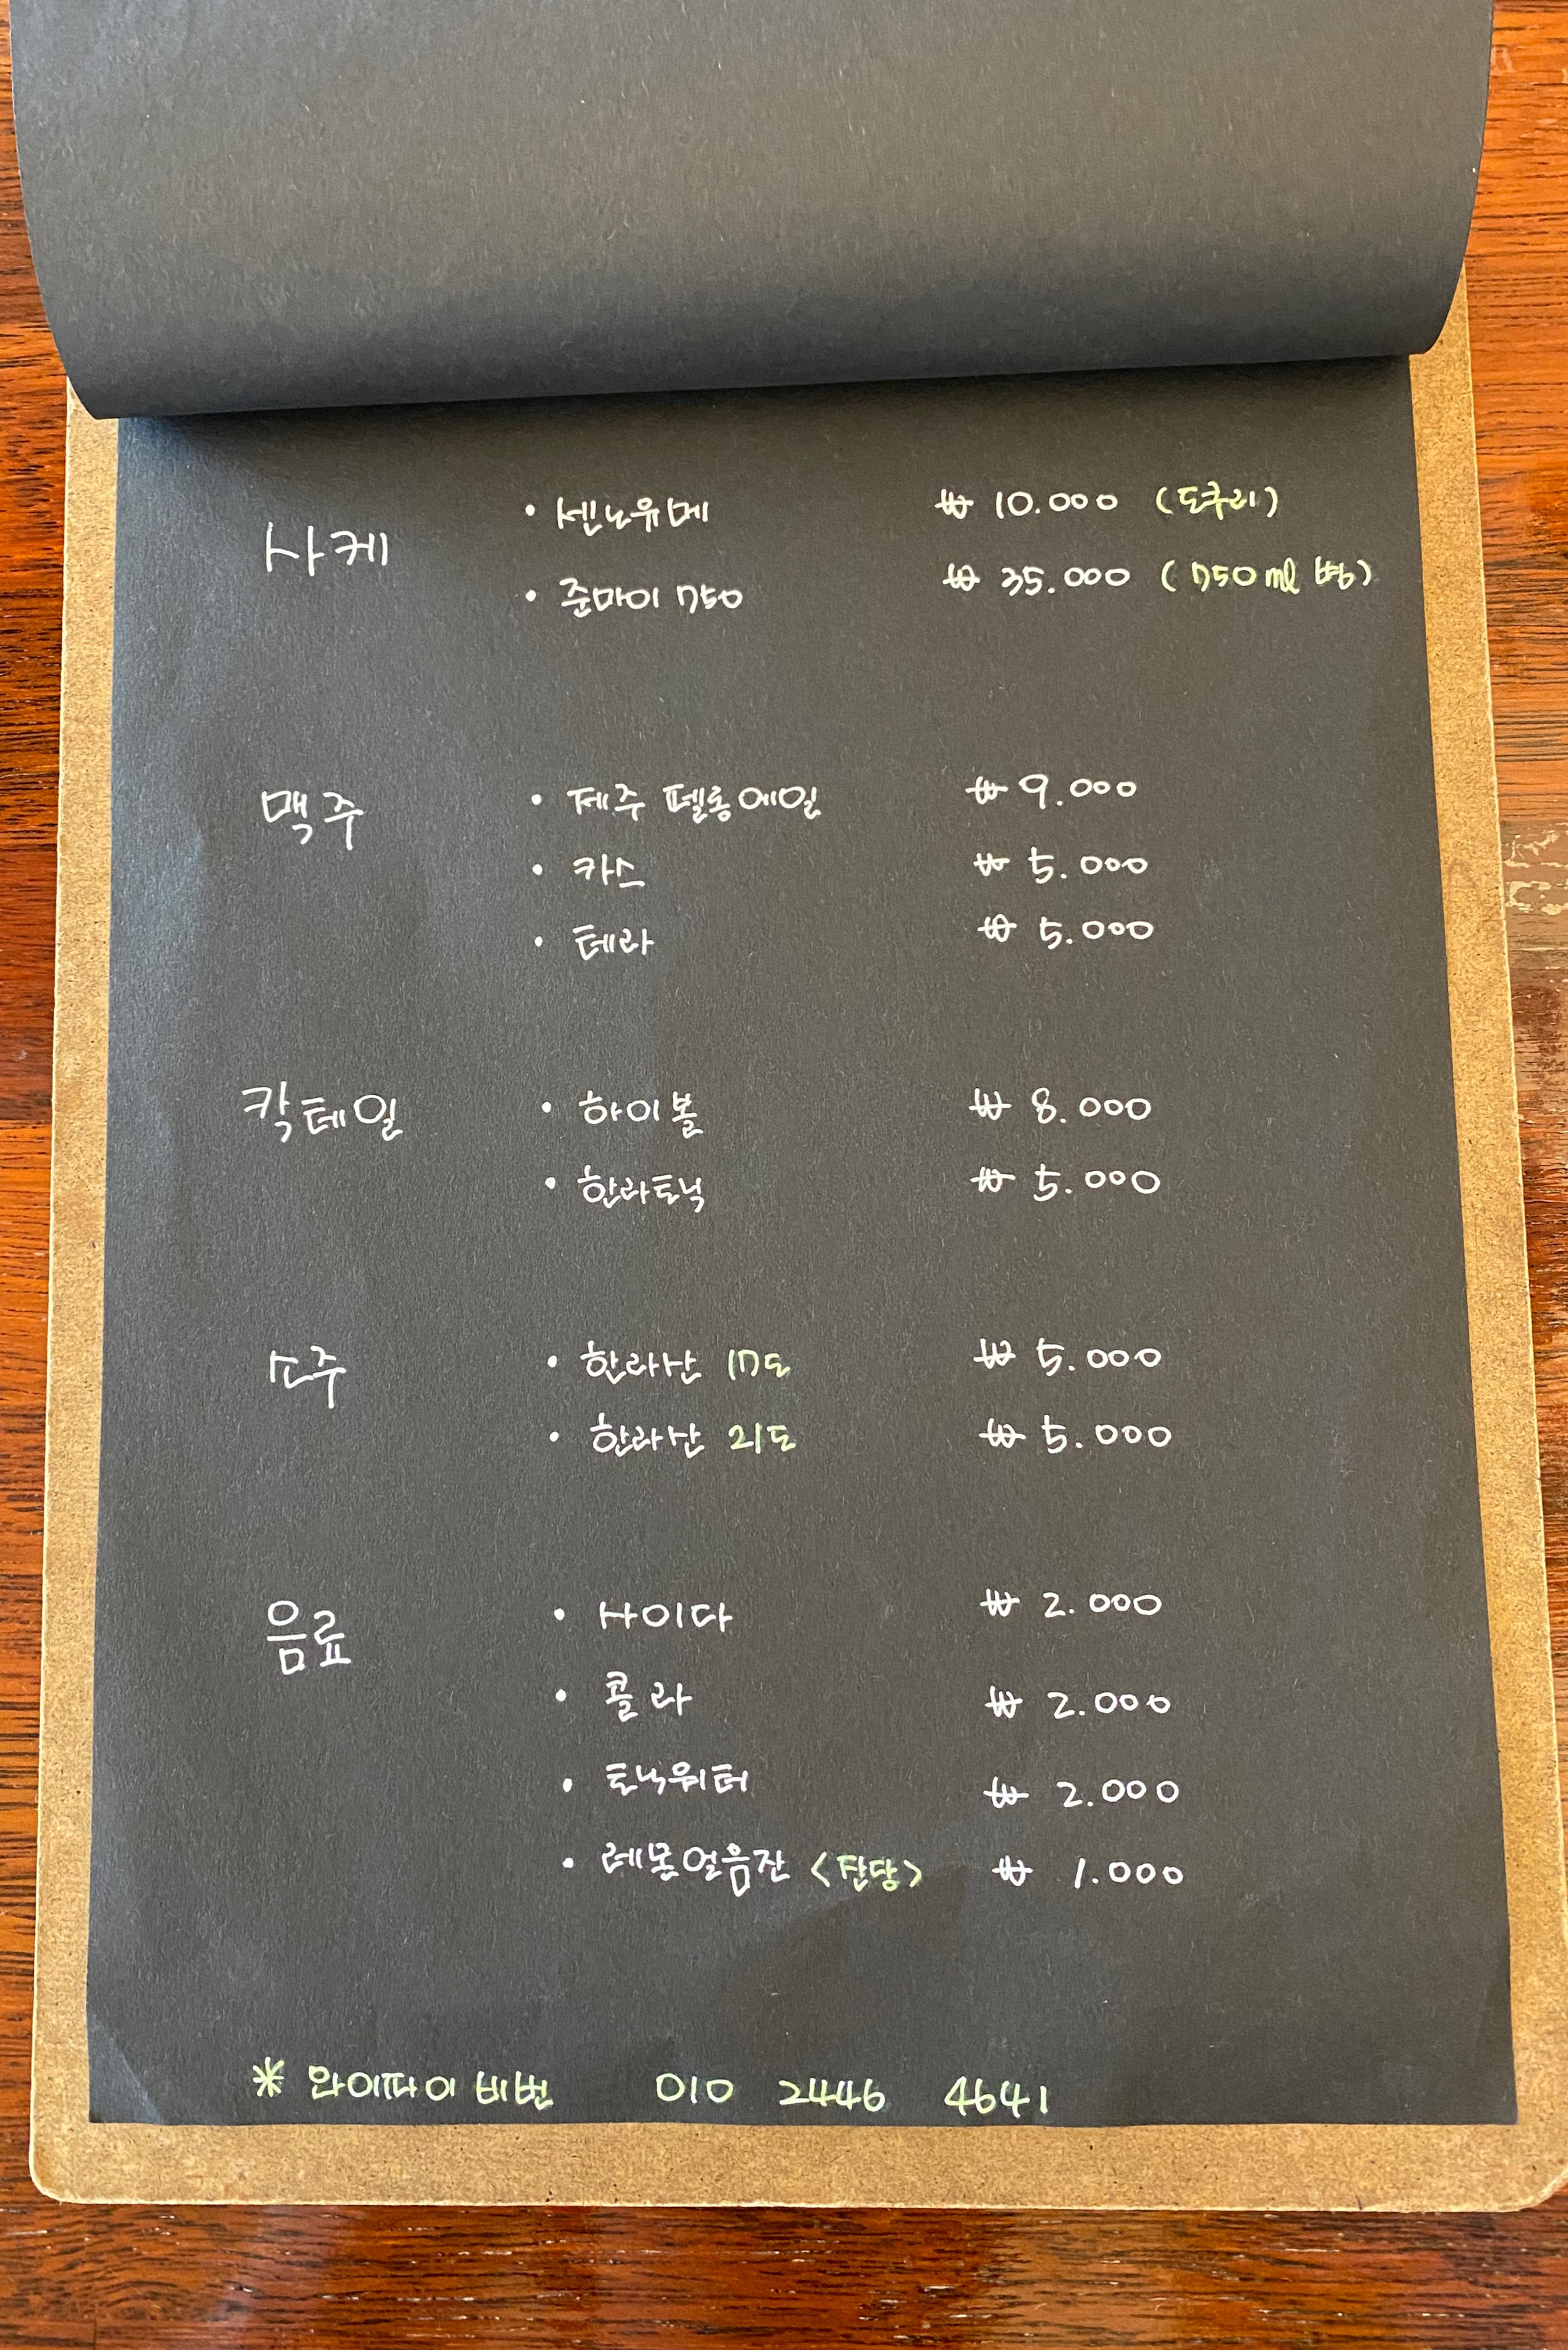 사케 · 센노유메 ₩ 10.000 (도쿠리)
· 준마이 750 ₩ 35.000 (750ml 병)
맥주 · 제주 펠롱에일 ₩ 9.000
· 카스 ₩ 5.000
· 테라 ₩ 5.000
칵테일 · 하이볼 ₩ 8.000
· 한라토닉 ₩ 5.000
소주 · 한라산 17도 ₩ 5.000
· 한라산 21도 ₩ 5.000
음료 · 사이다 ₩ 2.000
· 콜라 ₩ 2.000
· 토닉워터 ₩ 2.000
· 레몬얼음잔 <잔당> ₩ 1.000
* 와이파이 비번 010 2446 4641